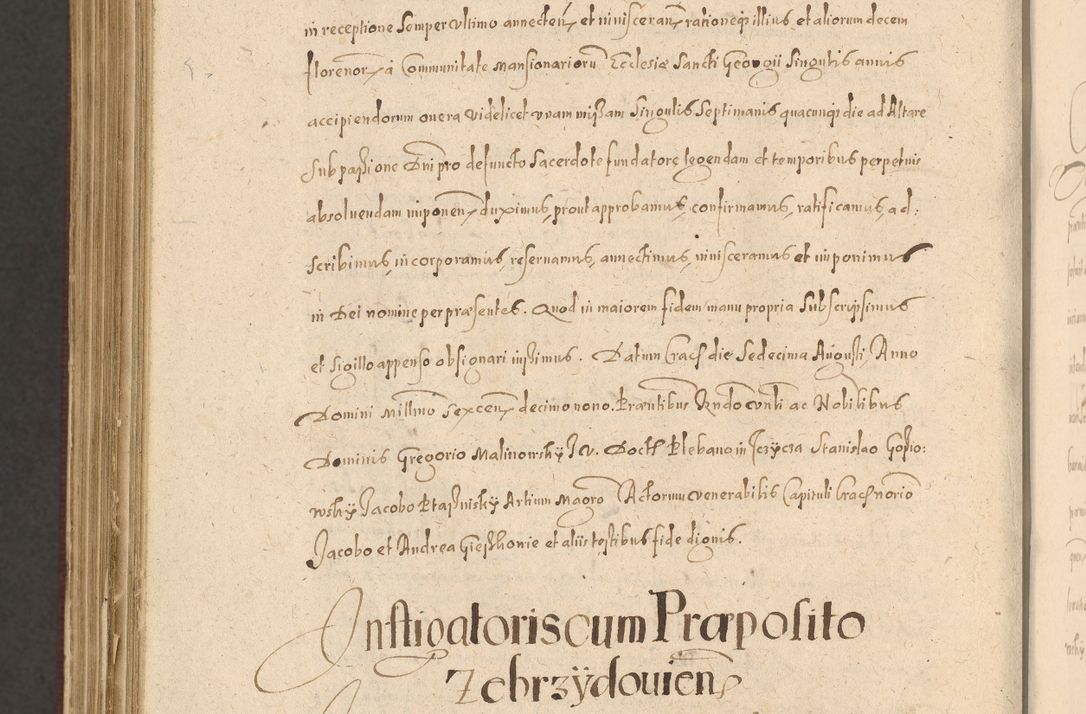 in receptione semper ultimo annecten. et inuisceran. rationeq; illius et aliorum decem
florenor. à Communitate Mansionarioru Ecclesiæ Sancti Georgii singulis annis
accipiendorum onera videlicet unam missam singulis septimanis quacunq; die ad Altare
sub passione Dni pro defuncto Sacerdote fundatore legendam et temporibus perpetuis
absoluendam imponen. duximus, prout approbamus, confirmamus, ratificamus, ad:
scribimus, incorporamus, reseruamus, annectimus, inuisceramus et imponimus
in Dei nomine per præsentes. Quod in maiorem fidem manu propria subscripsimus
et sigillo appenso obsignari iussimus. Datum Crac. die Sedecima Augusti, Anno
Domini Millmo sexcen. decimo nono. Præntibus Rndo ac Nobilibus
Dominis Gregorio Malinowsky J.V. Doct. Plebano in Jczycza Stanislao Gosio:
wsky Jacobo Ptassinsky Artium Magro Actorum venerabilis Capituli Crac. notario
Jacobo et Andrea et aliis testibus fide dignis.
Instigatoris cum Præposito
Zebrzÿdouien.